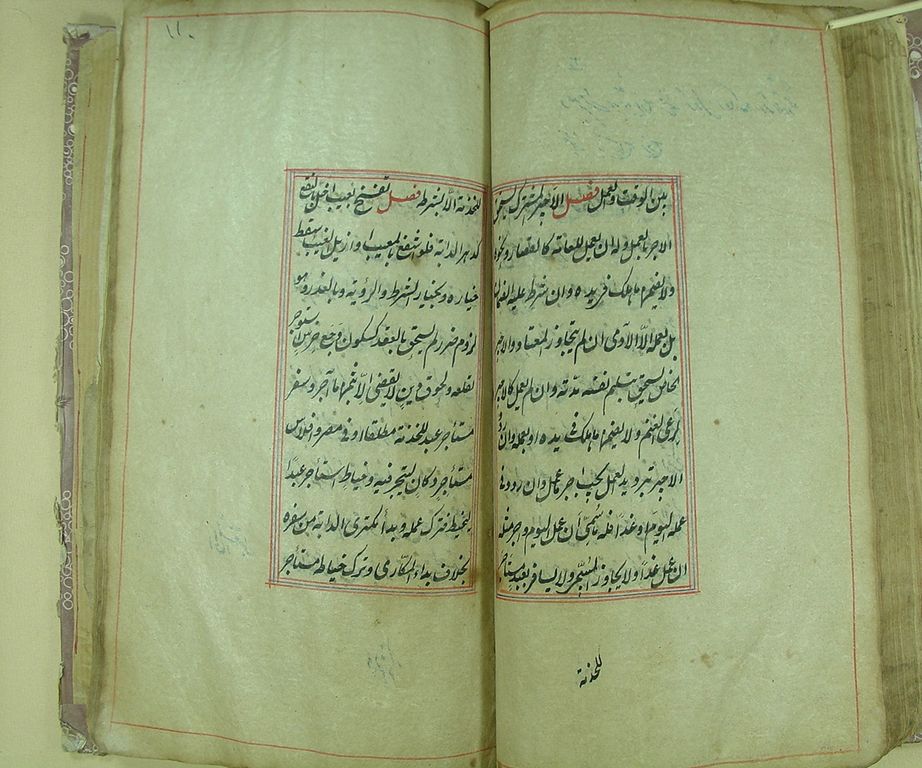 بين الوقت والعمل فصل الاجير المشترك يستحق
الاجر بالعمل وله ان يعمل للعامة كالقصار ونحوه
ولا يضمن ما هلك في يده وان شرط عليه الضمان
بل بعمله الا الآدمى ان لم يتجاوز المعتاد والاجير
الخاص يستحق بتسليم نفسه مدته وان لم يعمل كالاجير
لرعى الغنم ولا يضمن ما هلك في يده او بعمله وان ردد
الاجر بترديد العمل يجب اجر ما عمل وان ردد في
عمله اليوم او غدا فله ما سمى ان عمل اليوم واجر مثله
ان عمل غدا ولا يجاوز المسمى ولا يسافر بعبد مستأجر
للخدمة
١١٠
للخدمة الا بشرط فصل تفسخ بعيب اخل بالنفع
كدبر الدابة فلو انتفع بالمعيب او ازيل العيب سقط
خياره وبخيار الشرط والرؤية وبالعذر وهو
لزوم ضرر لم يستحق بالعقد كسكون وجع ضرس استوجر
لقلعه ولحوق دين لا يقضى الا بثمن ما آجر وسفر
مستأجر عبد للخدمة مطلقا او في مصر وافلاس
مستأجر دكان ليتجر فيه وخياط استأجر عبدا
ليخيط فترك عمله وبدا مكترى الدابة من سفره
بخلاف بداء المكارى وترك خياطة مستأجر